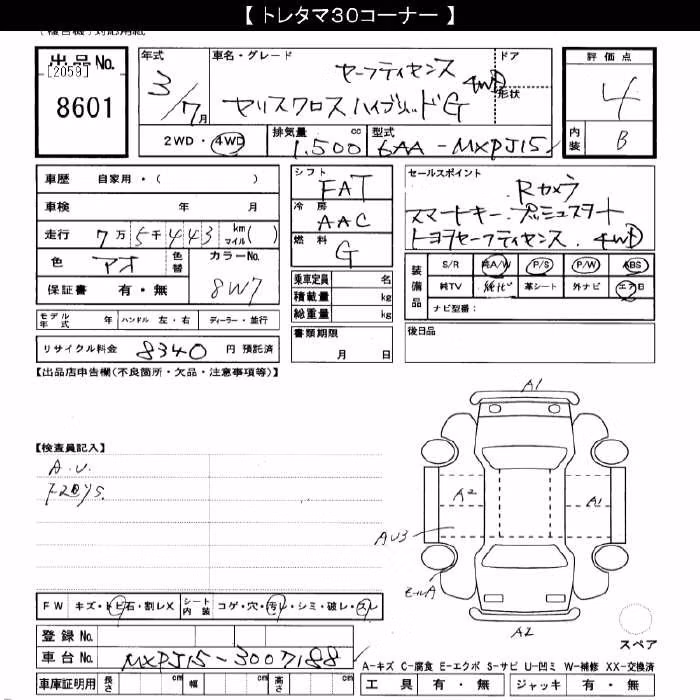 【 トレタマ30コーナー 】
出品No.
[2059]
8601
年式
3/7月
車名・グレード
セーフティセンス
ヤリスクロスハイブリッドG 4WD
ドア
形状
2WD・4WD
排気量
1.500 cc
型式
6AA-MXPJ15
評価点
4
内装
B
車歴 自家用・( )
車検 年 月
走行 7万5千443 km マイル( )
色 アオ 色替
カラーNo.
8W7
保証書 有・無
モデル年式 年 ハンドル 左・右 ディーラー・並行
リサイクル料金 8340 円 預託済
シフト
FAT
冷房
AAC
燃料
G
乗車定員 名
積載量 kg
総重量 kg
書類期限
月 日
セールスポイント
Rカメラ
スマートキー.プッシュスタート
トヨタセーフティセンス.4WD
装備品
S/R 純A/W P/S P/W ABS
純TV 純ナビ 革シート 外ナビ エアB
ナビ型番:
後日品
【出品店申告欄(不良箇所・欠品・注意事項等)】
【検査員記入】
A.U.
A1
A2
A1
AU3
モールA
A2
スペア
FW キズ・トビ石・割レX シート内装 コゲ・穴・汚レ・シミ・破レ・スレ
登録No.
車台No. MXPJ15-3007188
車庫証明用 長さ cm 幅 cm 高さ cm
A-キズ C-腐食 E-エクボ S-サビ U-凹ミ W-補修 XX-交換済
工具 有・無 ジャッキ 有・無